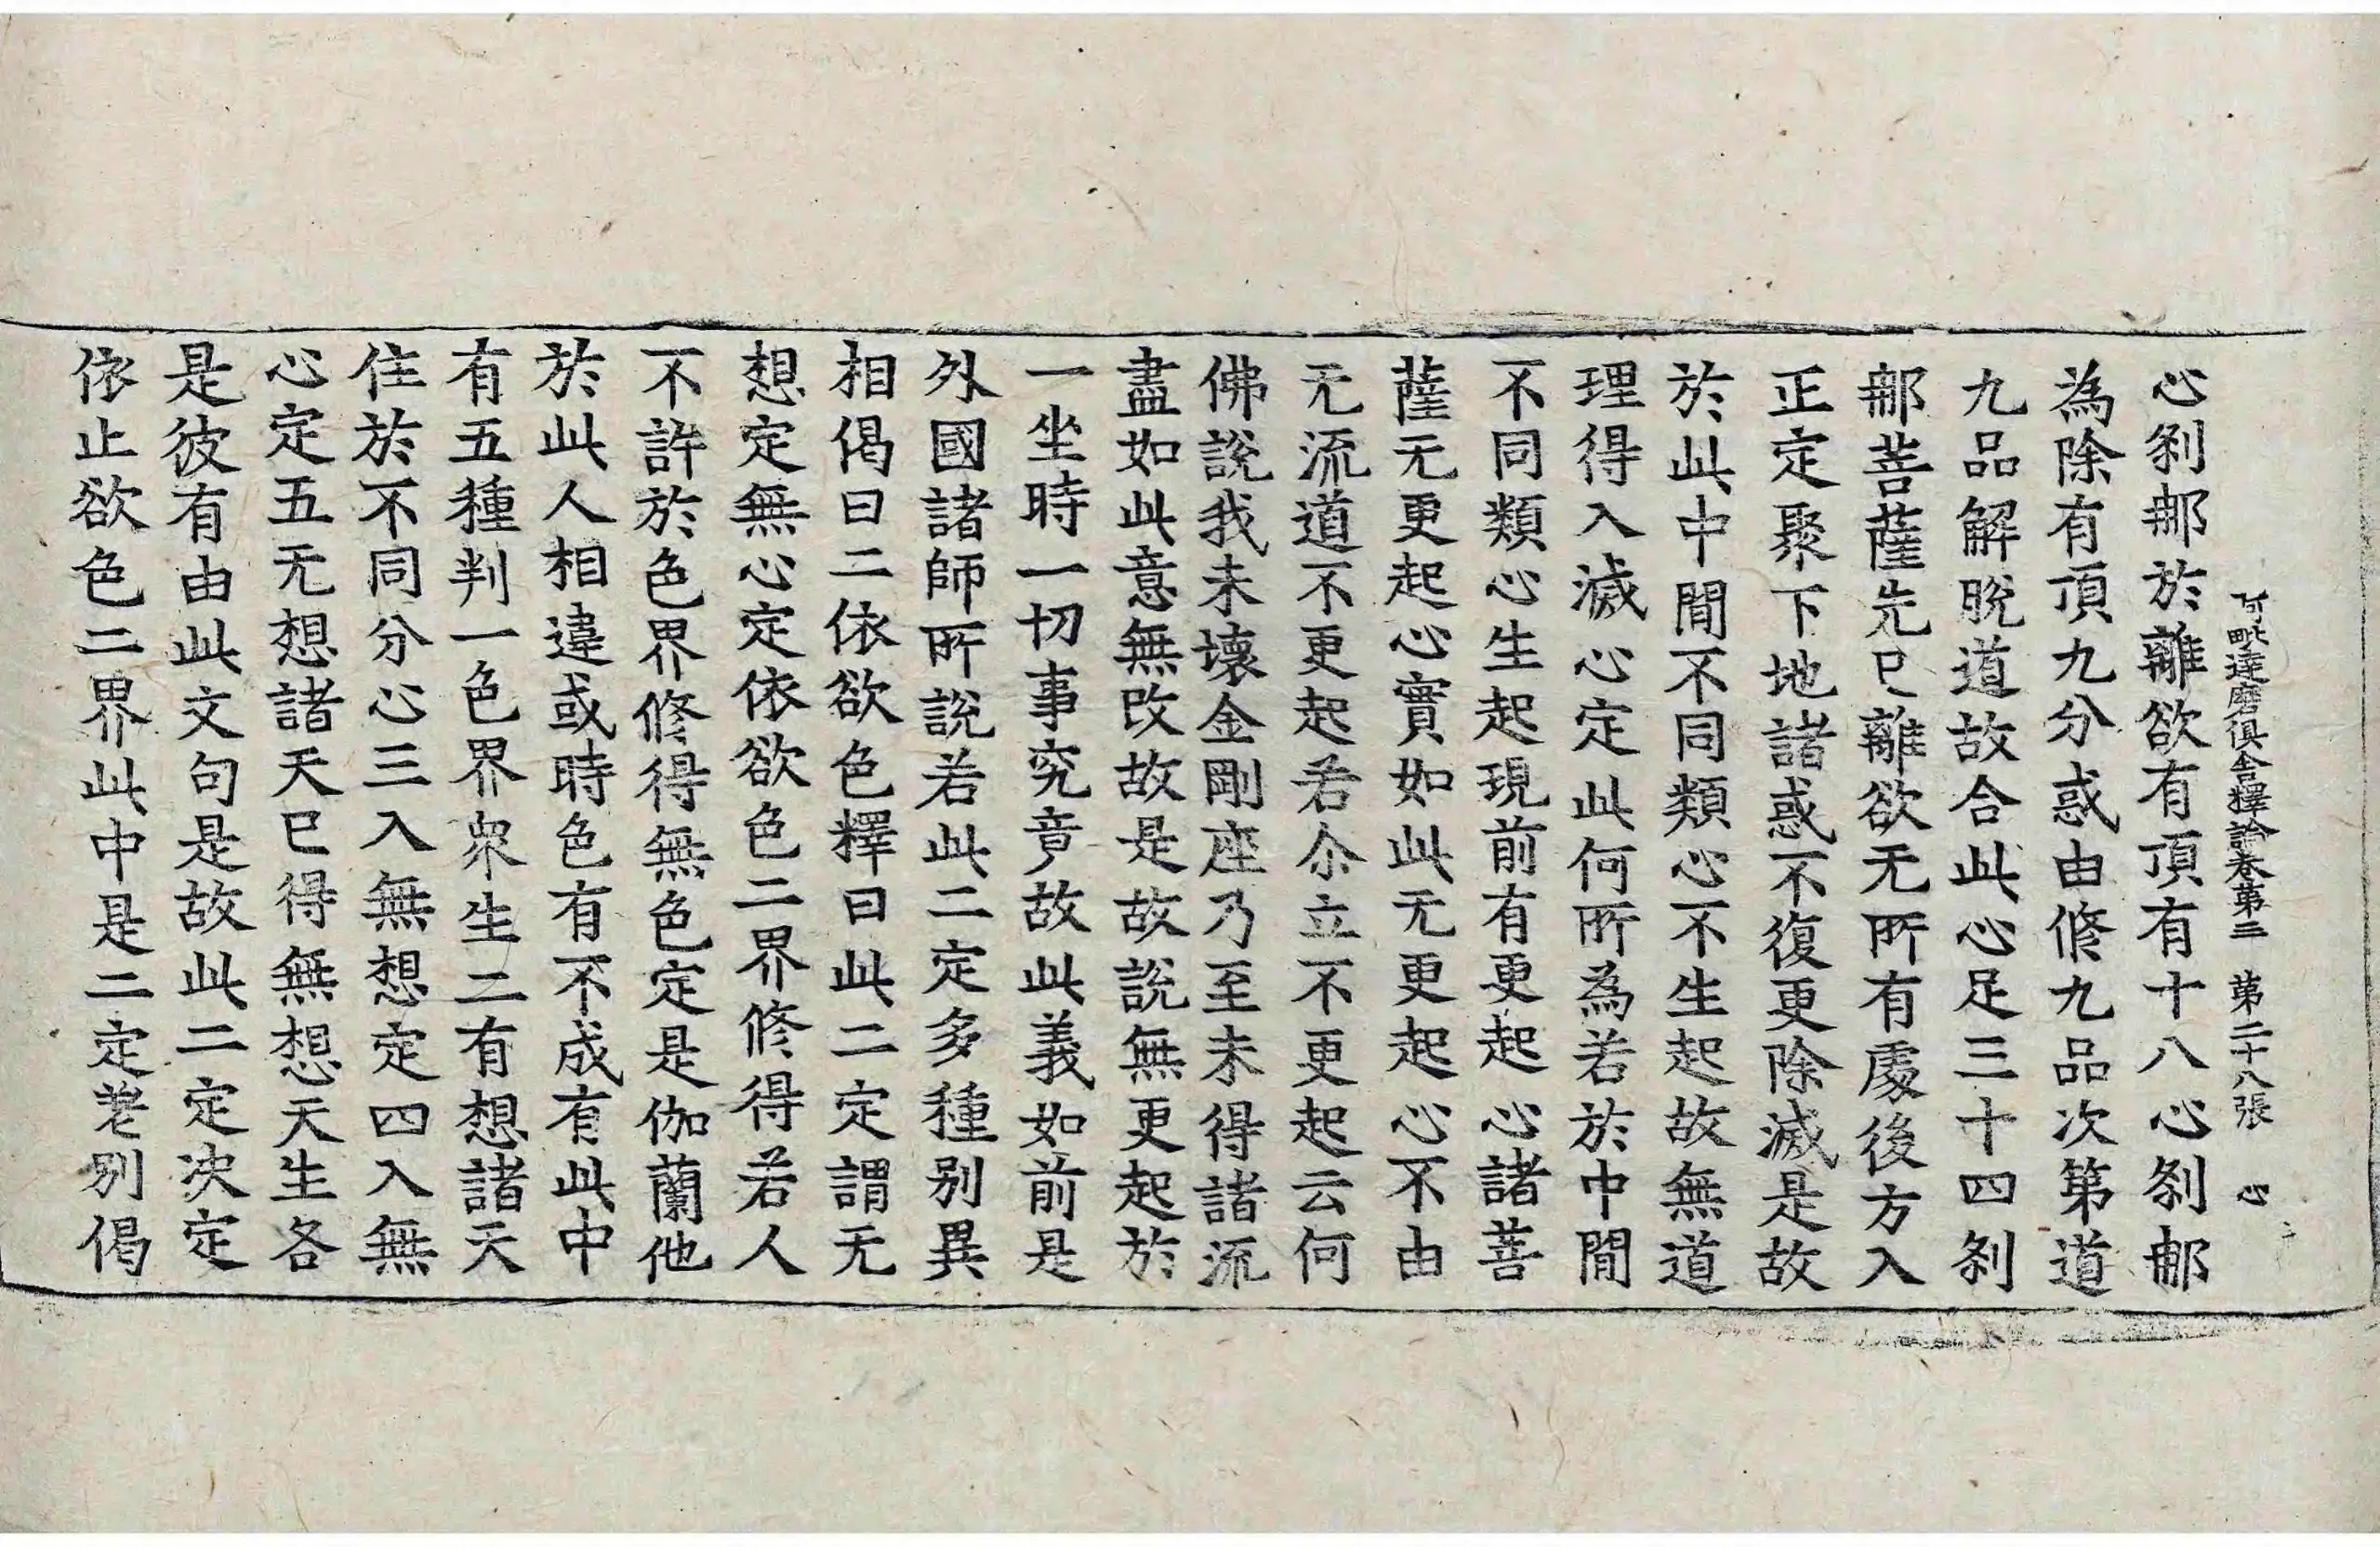 阿毗達磨俱舍釋論卷第三　第二十八張　心
心剎那於離欲有頂有十八心剎那
為除有頂九分惑由修九品次第道
九品解脫道故合此心足三十四剎
那菩薩先已離欲无所有處後方入
正定聚下地諸惑不復更除滅是故
於此中間不同類心不生起故無道
理得入滅心定此何所為若於中間
不同類心生起現前有更起心諸菩
薩无更起心實如此无更起心不由
无流道不更起若尒立不更起云何
佛說我未壞金剛座乃至未得諸流
盡如此意無改故是故說無更起於
一坐時一切事究竟故此義如前是
外國諸師所說若此二定多種別異
相偈曰二依欲色釋曰此二定謂无
想定無心定依欲色二界修得若人
不許於色界修得無色定是伽蘭他
於此人相違或時色有不成有此中
有五種判一色界眾生二有想諸天
住於不同分心三入無想定四入無
心定五无想諸天已得無想天生各
是彼有由此文句是故此二定決定
依止欲色二界此中是二定差別偈